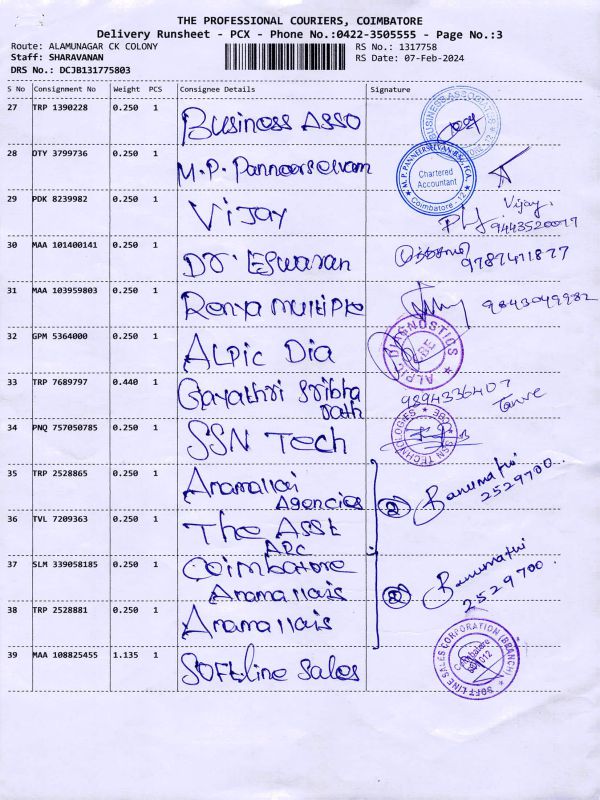 THE PROFESSIONAL COURIERS, COIMBATORE
Delivery Runsheet - PCX - Phone No.:0422-3505555 - Page No.:3
Route: ALAMUNAGAR CK COLONY
RS No.: 1317758
Staff: SHARAVANAN
RS Date: 07-Feb-2024
DRS No.: DCJB131775803
S No Consignment No Weight PCS Consignee Details Signature
27 TRP 1390228 0.250 1 Business Asso
BUSINESS ASSOCIATES
28 DTY 3799736 0.250 1 M.P. Panneerselvam
M.P. PANNEERSELVAN
Chartered Accountant
Coimbatore - 12
29 PDK 8239982 0.250 1 Vijay
Vijay
9443520077
30 MAA 101400141 0.250 1 Dr. Eswaran
9787411877
31 MAA 103959803 0.250 1 Renya multiple
9843049982
32 GPM 5364000 0.250 1 ALPIC Dia
ALPIC DIAGNOSTICS
CBE
33 TRP 7689797 0.440 1 Gayathri Sribha
rath
9894336407
34 PNQ 757050785 0.250 1 SSN Tech
SSN TECHNOLOGIES CBE
35 TRP 2528865 0.250 1 Anamallai
Agencies
2 Banumathi
2529700
36 TVL 7209363 0.250 1 The Asst
APC
37 SLM 339058185 0.250 1 Coimbatore
Anamallais
2 Banumathi
2529700
38 TRP 2528881 0.250 1 Anamallais
39 MAA 108825455 1.135 1 Softline Sales
SOFTLINE SALES CORPORATION (BRANCH)
Coimbatore
641 012